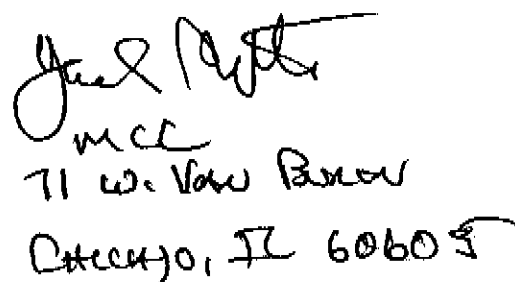 MCC
71 W. Van Buren
Chicago, IL 60605